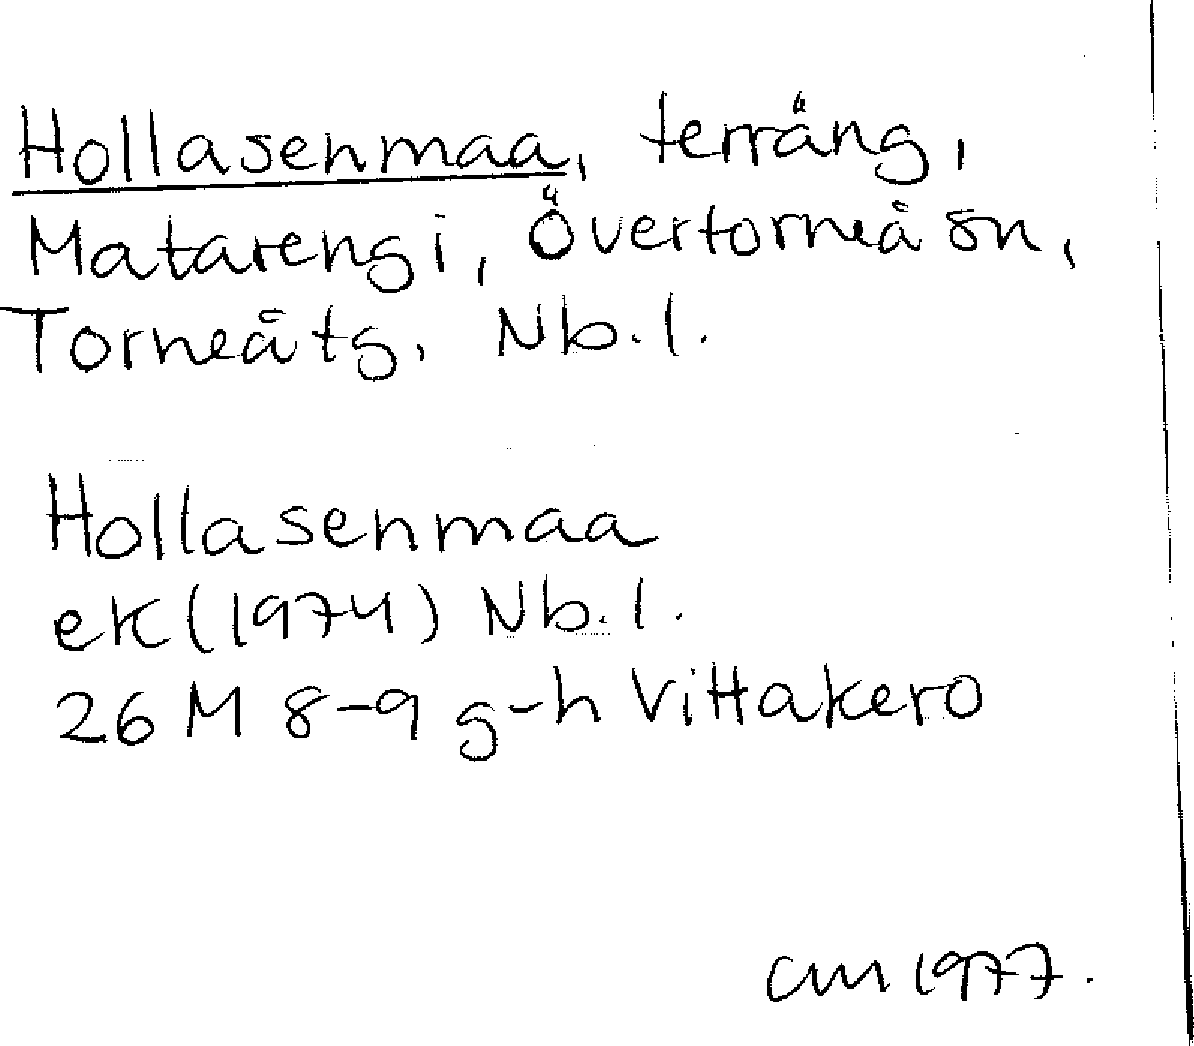 Hollasenmaa, terräng,
Matarengi, Övertorneå sn,
Torneå tg, Nb. l.
Hollasenmaa
ek (1974) Nb. l.
26 M 8-9 g-h Vittakero
CM 1977.